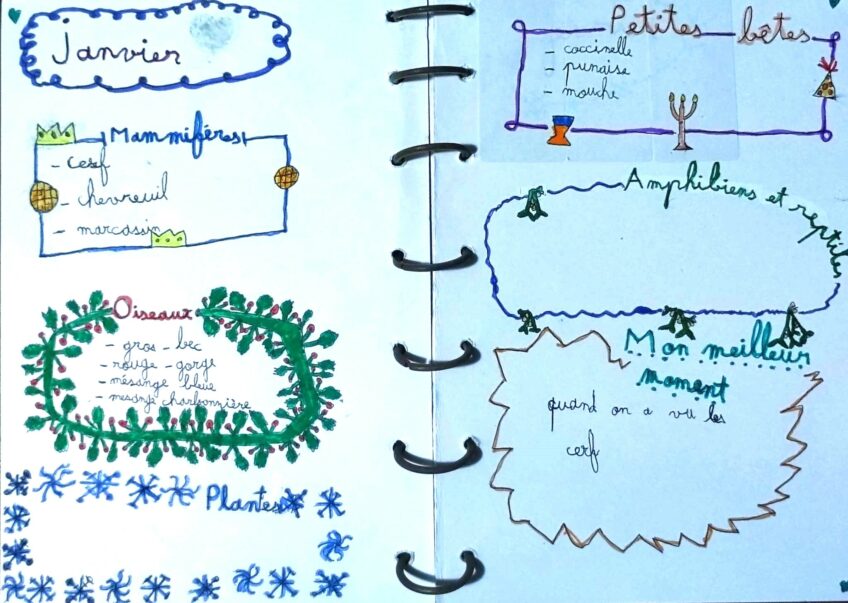 Janvier
Mammifères
- cerf
- chevreuil
- marcassin
Oiseaux
- gros-bec
- rouge-gorge
- mésange bleue
- mesange charbonnière
Plantes
Petites bêtes
- coccinelle
- punaise
- mouche
Amphibiens et reptiles
Mon meilleur
moment
quand on a vu les
cerf